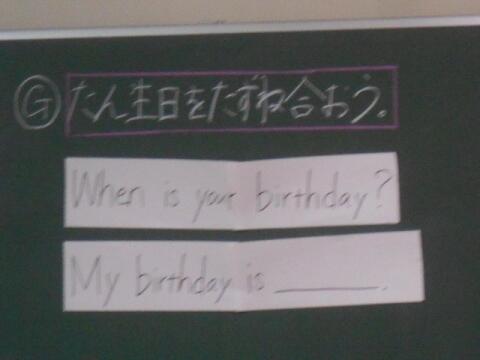 Ⓖ たん生日をたずね合おう。
When is your birthday?
My birthday is ______.